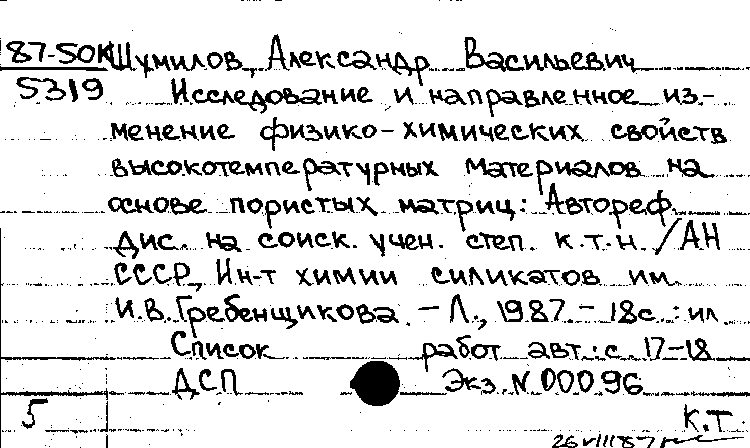 87-50К Шумилов, Александр Васильевич
5319 Исследование и направленное из-
менение физико-химических свойств
высокотемпературных материалов на
основе пористых матриц: Автореф.
дис. на соиск. учен. степ. к.т.н. / АН
СССР, Ин-т химии силикатов им.
И.В. Гребенщикова. - Л., 1987. - 18с. : ил
Список работ авт.: с. 17-18
ДСП Экз. N 00096
5 К.Т